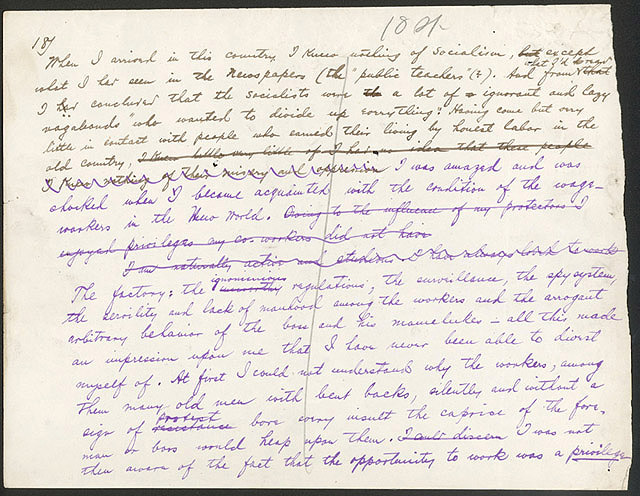 187
184
When I arrived in this country I knew nothing of Socialism, but except
what I'd
what I had seen in the Newspapers (the "public teachers"(?). And from that
I had concluded that the socialists were a lot of ignorant and lazy
vagabonds "who wanted to divide up everything". Having come but very
little in contact with people who earned their living by honest labor in the
old country, I knew little very little of I had no idea that these people
I knew nothing of their misery and oppression I was amazed and was
shocked when I became acquainted with the condition of the wage-
workers in the New World. Owing to the influence of my protectors I
enjoyed privileges my co-workers did not have
I am naturally active and studious I have always liked to work
The factory: the ignominious unworthy regulations, the surveillance, the spy system,
the servility and lack of manhood among the workers and the arrogant
arbitrary behavior of the boss and his mamelukes – all this made
an impression upon me that I have never been able to divest
myself of. At first I could not understand why the workers, among
them many old men with bent backs, silently and without a
sign of protest resistance bore every insult the caprice of the fore-
man or boss would heap upon them. I was not
then aware of the fact that the opportunity to work was a privilege